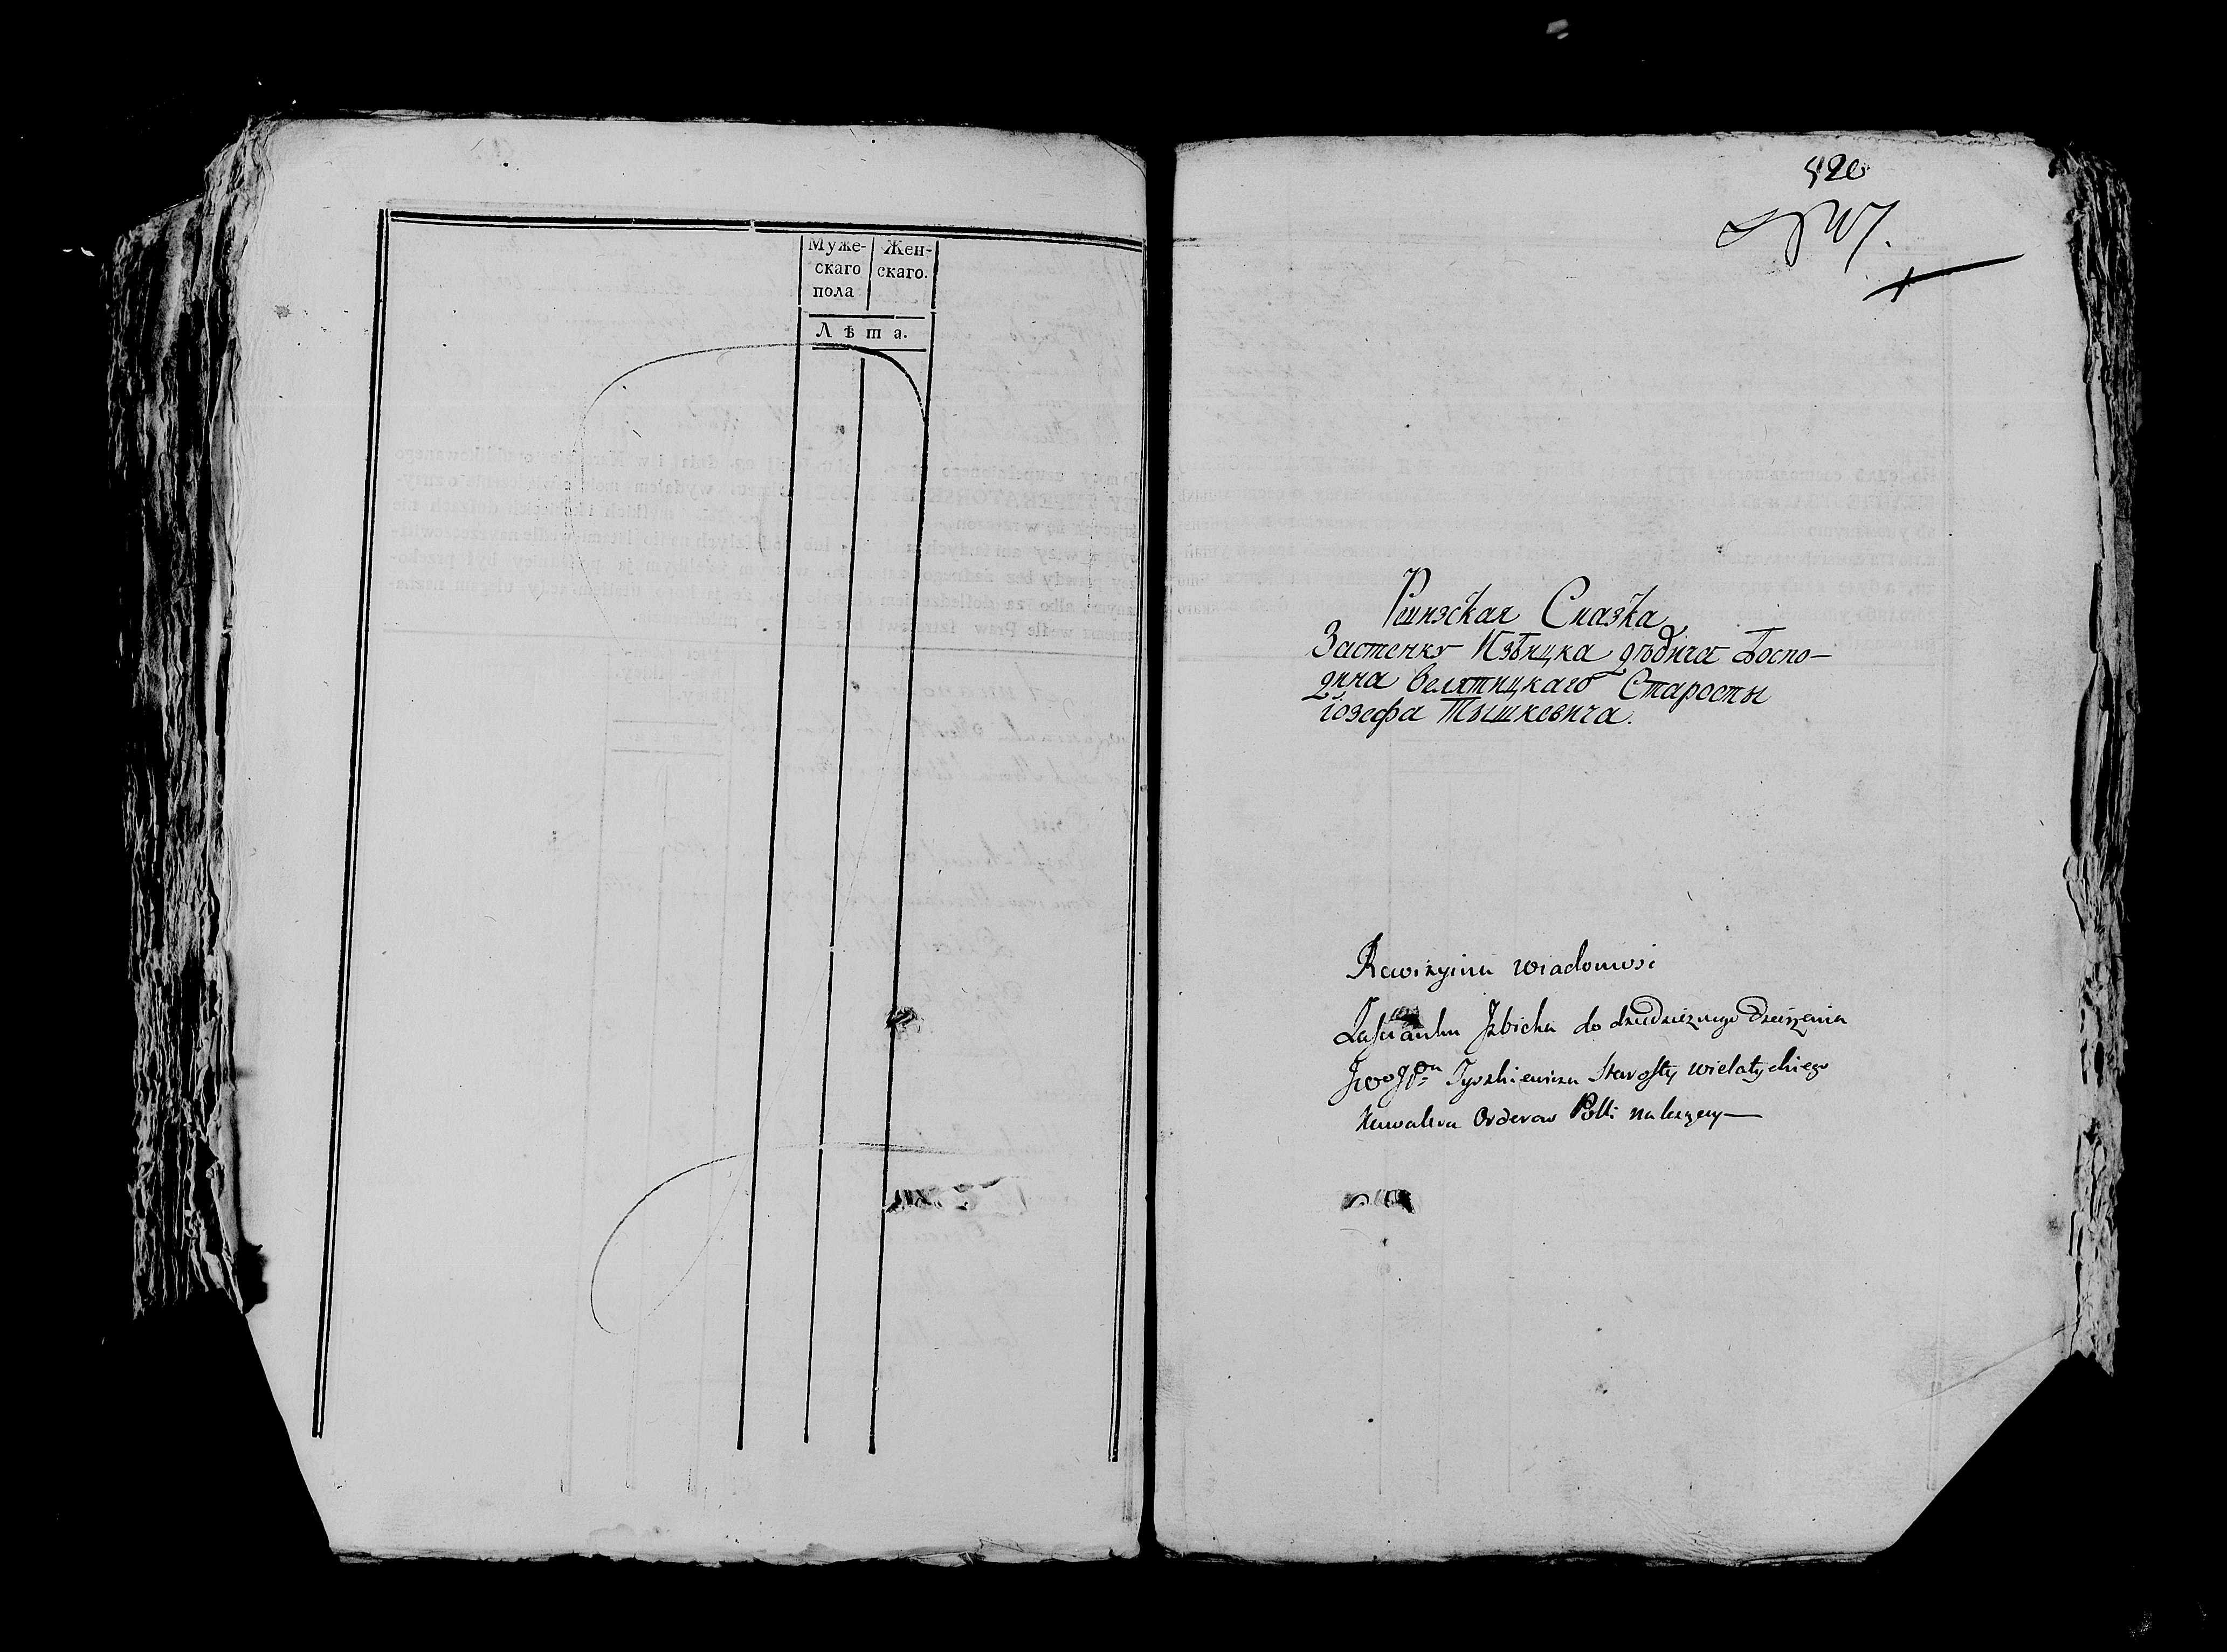 Муже-
скаго
пола
Жен-
скаго.
Лѣта.
520
Сказка
Застенку Избицка дѣдича Госпо-
дина Велятицкаго Старосты
Іозефа Тышкевича.
Rewizyina wiadomosc
Zascianku Izbicka do dziedzicznego dzierzenia
Tyszkiewicza Starosty wielatyckiego
Kawalera Orderow Polli nalezący